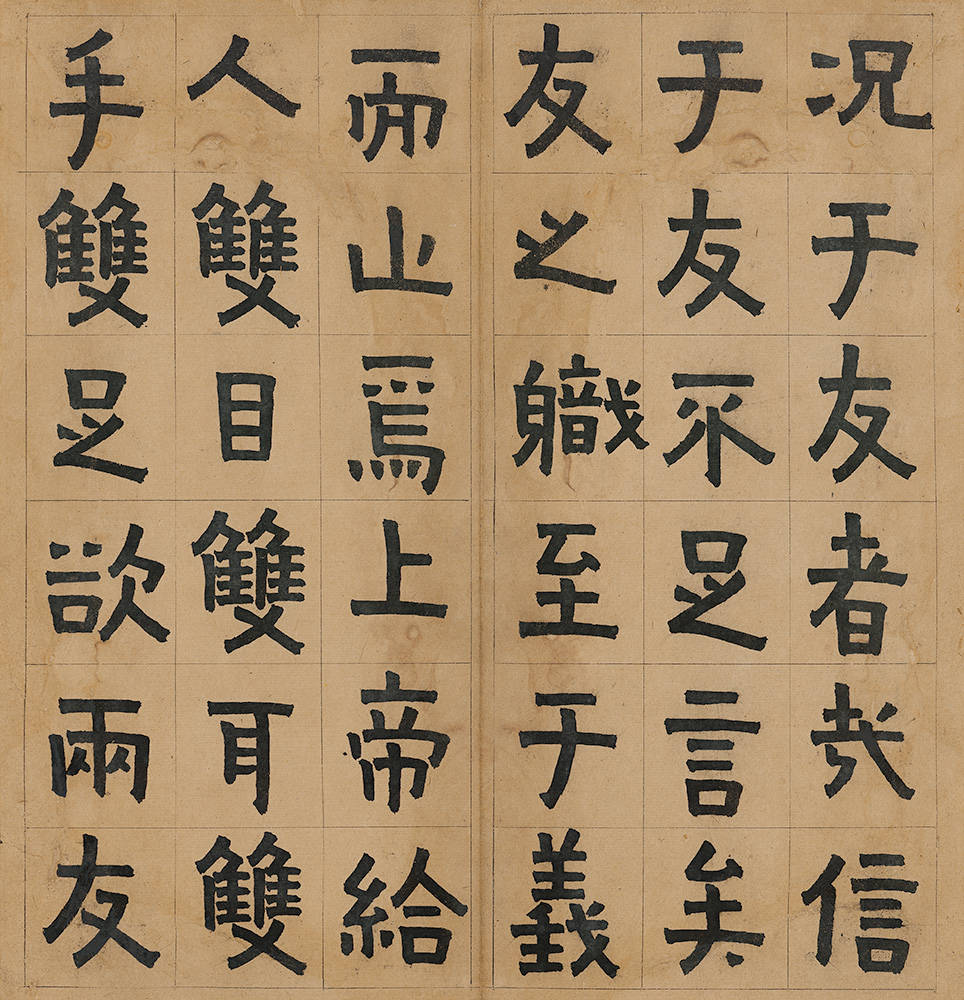 况于友者哉信
于友不足言矣
友之軄至于義
而止焉上帝給
人雙目雙耳雙
手雙足欲兩友